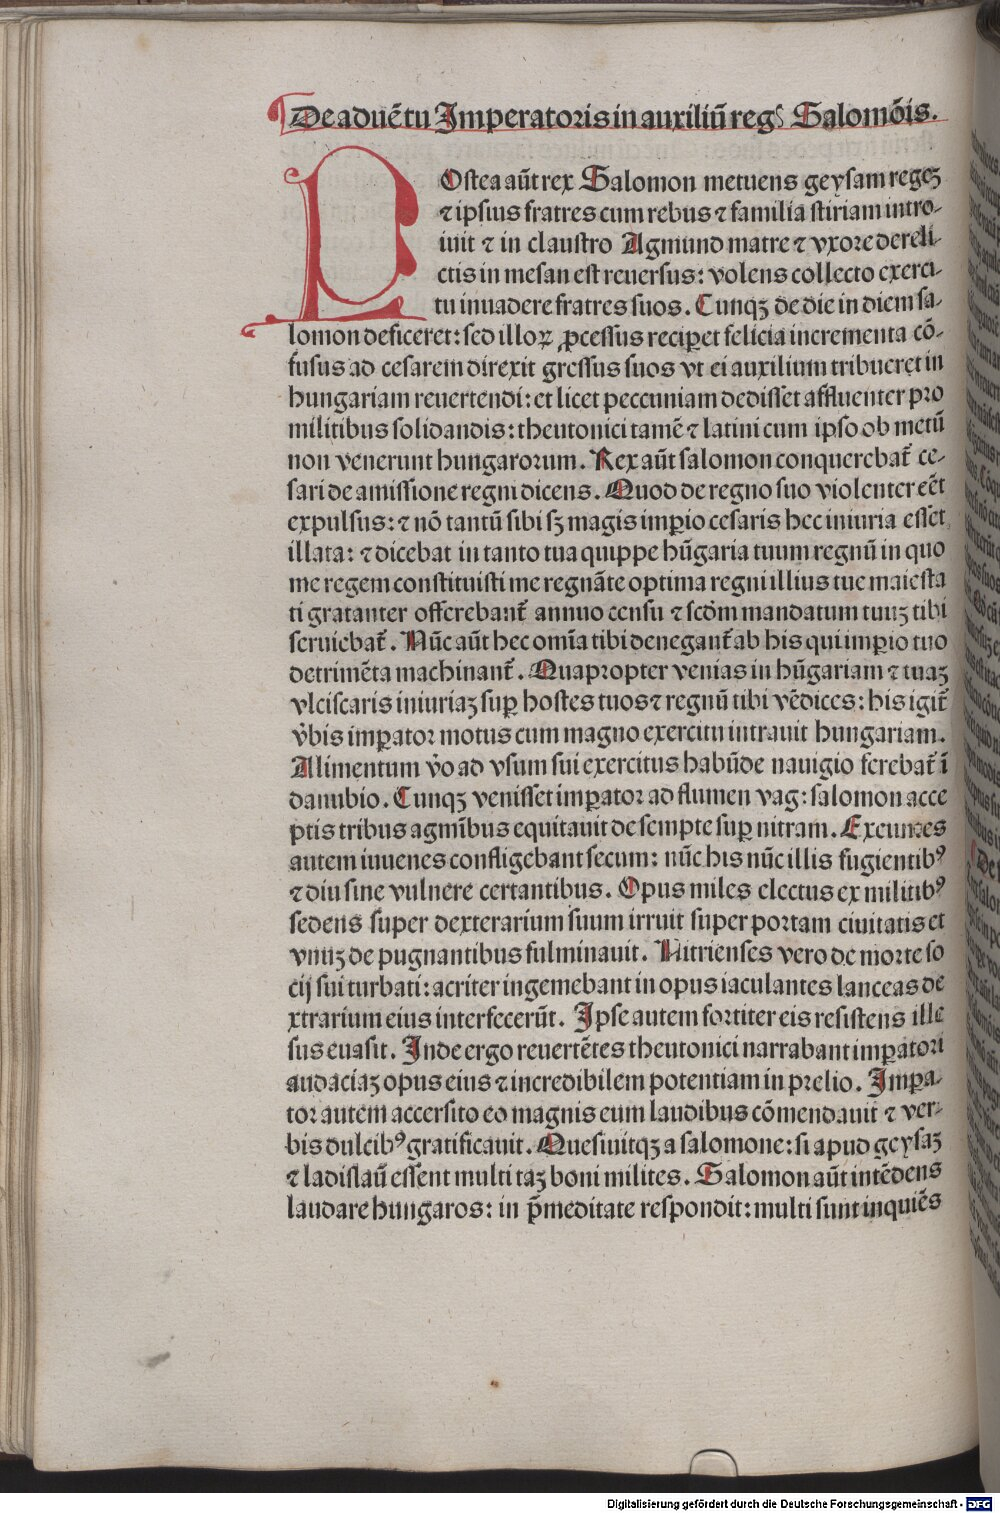 De aduētu Imperatoris in auxiliū regꝭ Salomōis.
POstea aūt rex Salomon metuens geysam regeꝫ
⁊ ipsius fratres cum rebus ⁊ familia stiriam intro⸗
iuit ⁊ in claustro Agmund matre ⁊ vxore dereli⸗
ctis in mesan est reuersus: volens collecto exerci⸗
tu inuadere fratres suos. Cunqꝫ de die in diem sa⸗
lomon deficeret: sed illoꝝ ꝓcessus reciꝑet felicia incrementa cō⸗
fusus ad cesarem direxit gressus suos vt ei auxilium tribueret in
hungariam reuertendi: et licet peccuniam dedisset affluenter pro
militibus solidandis: theutonici tamē ⁊ latini cum ipso ob metū
non venerunt hungarorum. Rex aūt salomon conquerebat̄ ce⸗
sari de amissione regni dicens. Quod de regno suo violenter eēt
expulsus: ⁊ nō tantū sibi sꝫ magis imꝑio cesaris hec iniuria esset
illata: ⁊ dicebat in tanto tua quippe hūgaria tuum regnū in quo
me regem constituisti me regnāte optima regni illius tue maiesta
ti gratanter offerebant̄ annuo censu ⁊ scōm mandatum tuuꝫ tibi
seruiebat̄. Nūc aūt hec omīa tibi denegant̄ ab his qui imꝑio tuo
detrimēta machinant̄. Quapropter venias in hūgariam ⁊ tuaꝫ
vlciscaris iniuriaꝫ suꝑ hostes tuos ⁊ regnū tibi vēdices: his igit̄
v̄bis imꝑator motus cum magno exercitu intrauit hungariam.
Alimentum v̄o ad vsum sui exercitus habūde nauigio ferebat̄ ī
danubio. Cunqꝫ venisset imꝑator ad flumen vag: salomon acce
ptis tribus agmībus equitauit de sempte suꝑ nitram. Exeuntes
autem iuuenes confligebant secum: nūc his nūc illis fugientibꝰ
⁊ diu sine vulnere certantibus. Opus miles electus ex militibꝰ
sedens super dexterarium suum irruit super portam ciuitatis et
vnuꝫ de pugnantibus fulminauit. Nitrienses vero de morte so
cij sui turbati: acriter ingemebant in opus iaculantes lanceas de
xtrarium eius interfecerūt. Ipse autem fortiter eis resistens ille
sus euasit. Inde ergo reuertētes theutonici narrabant imꝑatori
audaciaꝫ opus eius ⁊ incredibilem potentiam in prelio. Impa⸗
tor autem accersito eo magnis eum laudibus cōmendauit ⁊ ver⸗
bis dulcibꝰ gratificauit. Quesiuitqꝫ a salomone: si apud geysaꝫ
⁊ ladislaū essent multi taꝫ boni milites. Salomon aūt intēdens
laudare hungaros: in p̄meditate respondit: multi sunt inquiēs
Digitalisierung gefördert durch die Deutsche Forschungsgemeinschaft - DFG